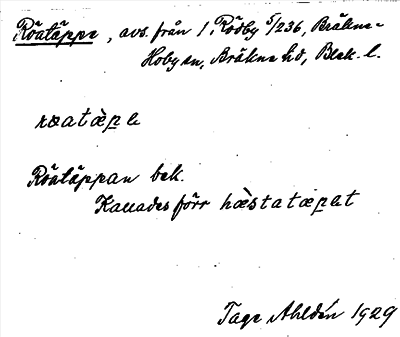 Röatäppe, avs. från 1 Röaby 5/236, Bräkne-
Hoby sn, Bräkne hd, Blek. l.
rœatæ̀pe
Röatäppan bek.
Kallades förr hæ̀statæpet
Tage Ahldén 1929